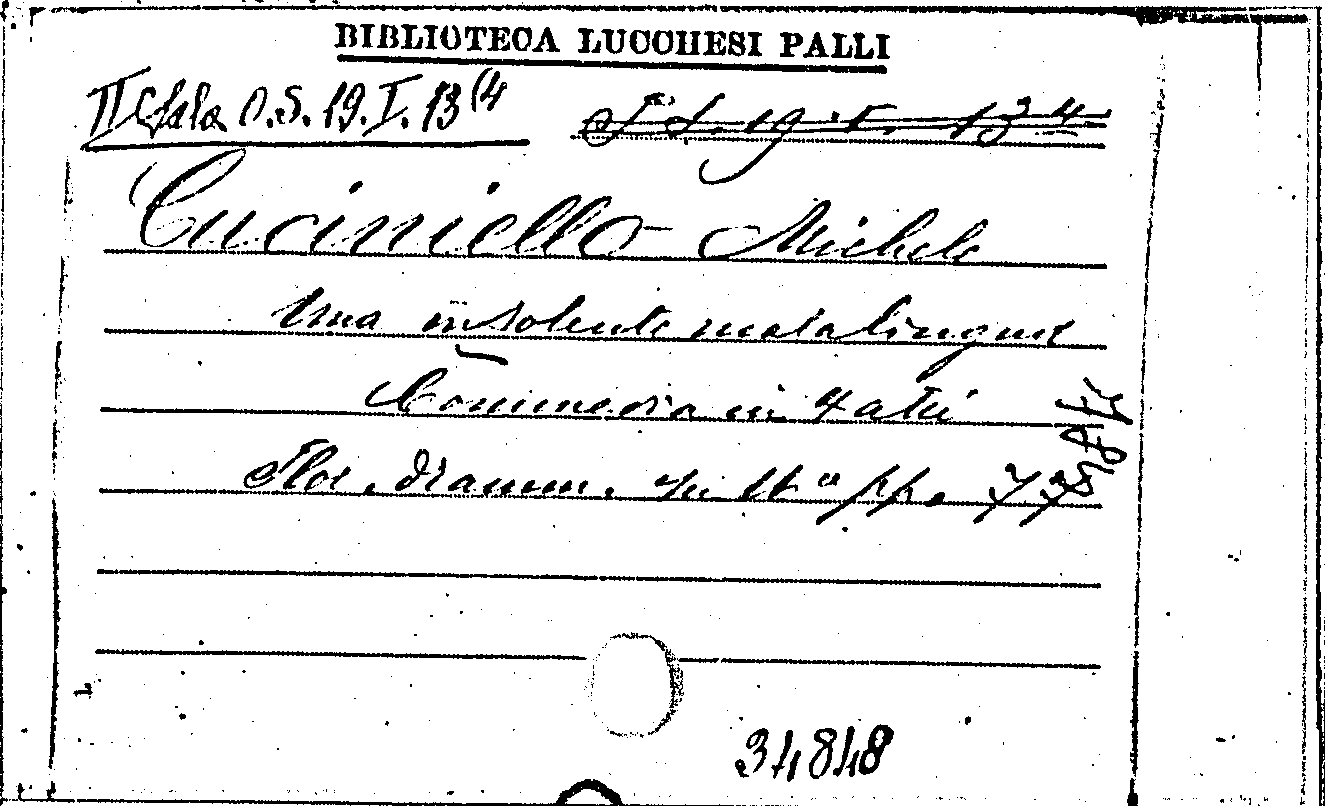 BIBLIOTECA LUCCHESI PALLI
II Sala O.S. 19. I. 13 (4
19. I. 13 4
Cuciniello Michele
Una insolente malalingua
Commedia in 4 atti
dramm. pp.
34848